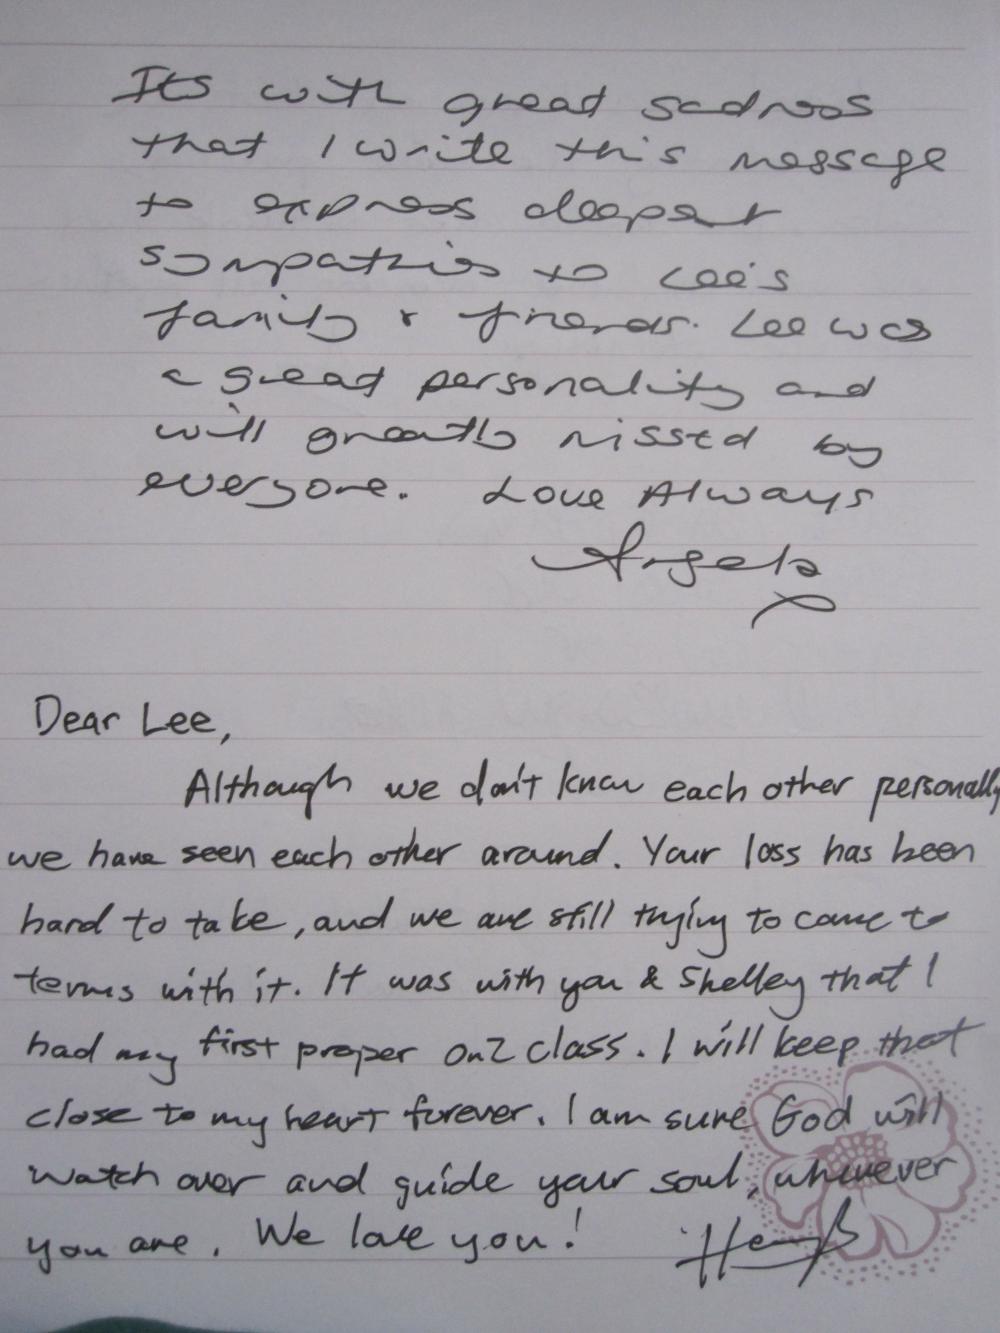 Its with great sadness
that I write this message
to express deepest
sympathies to Lee's
family & friends. Lee was
a great personality and
will greatly missed by
everyone. Love Always
Angela
Dear Lee,
Although we don't know each other personally
we have seen each other around. Your loss has been
hard to take, and we are still trying to come to
terms with it. It was with you & Shelley that I
had my first proper on2 class. I will keep that
close to my heart forever. I am sure God will
watch over and guide your soul, wherever
you are. We love you!